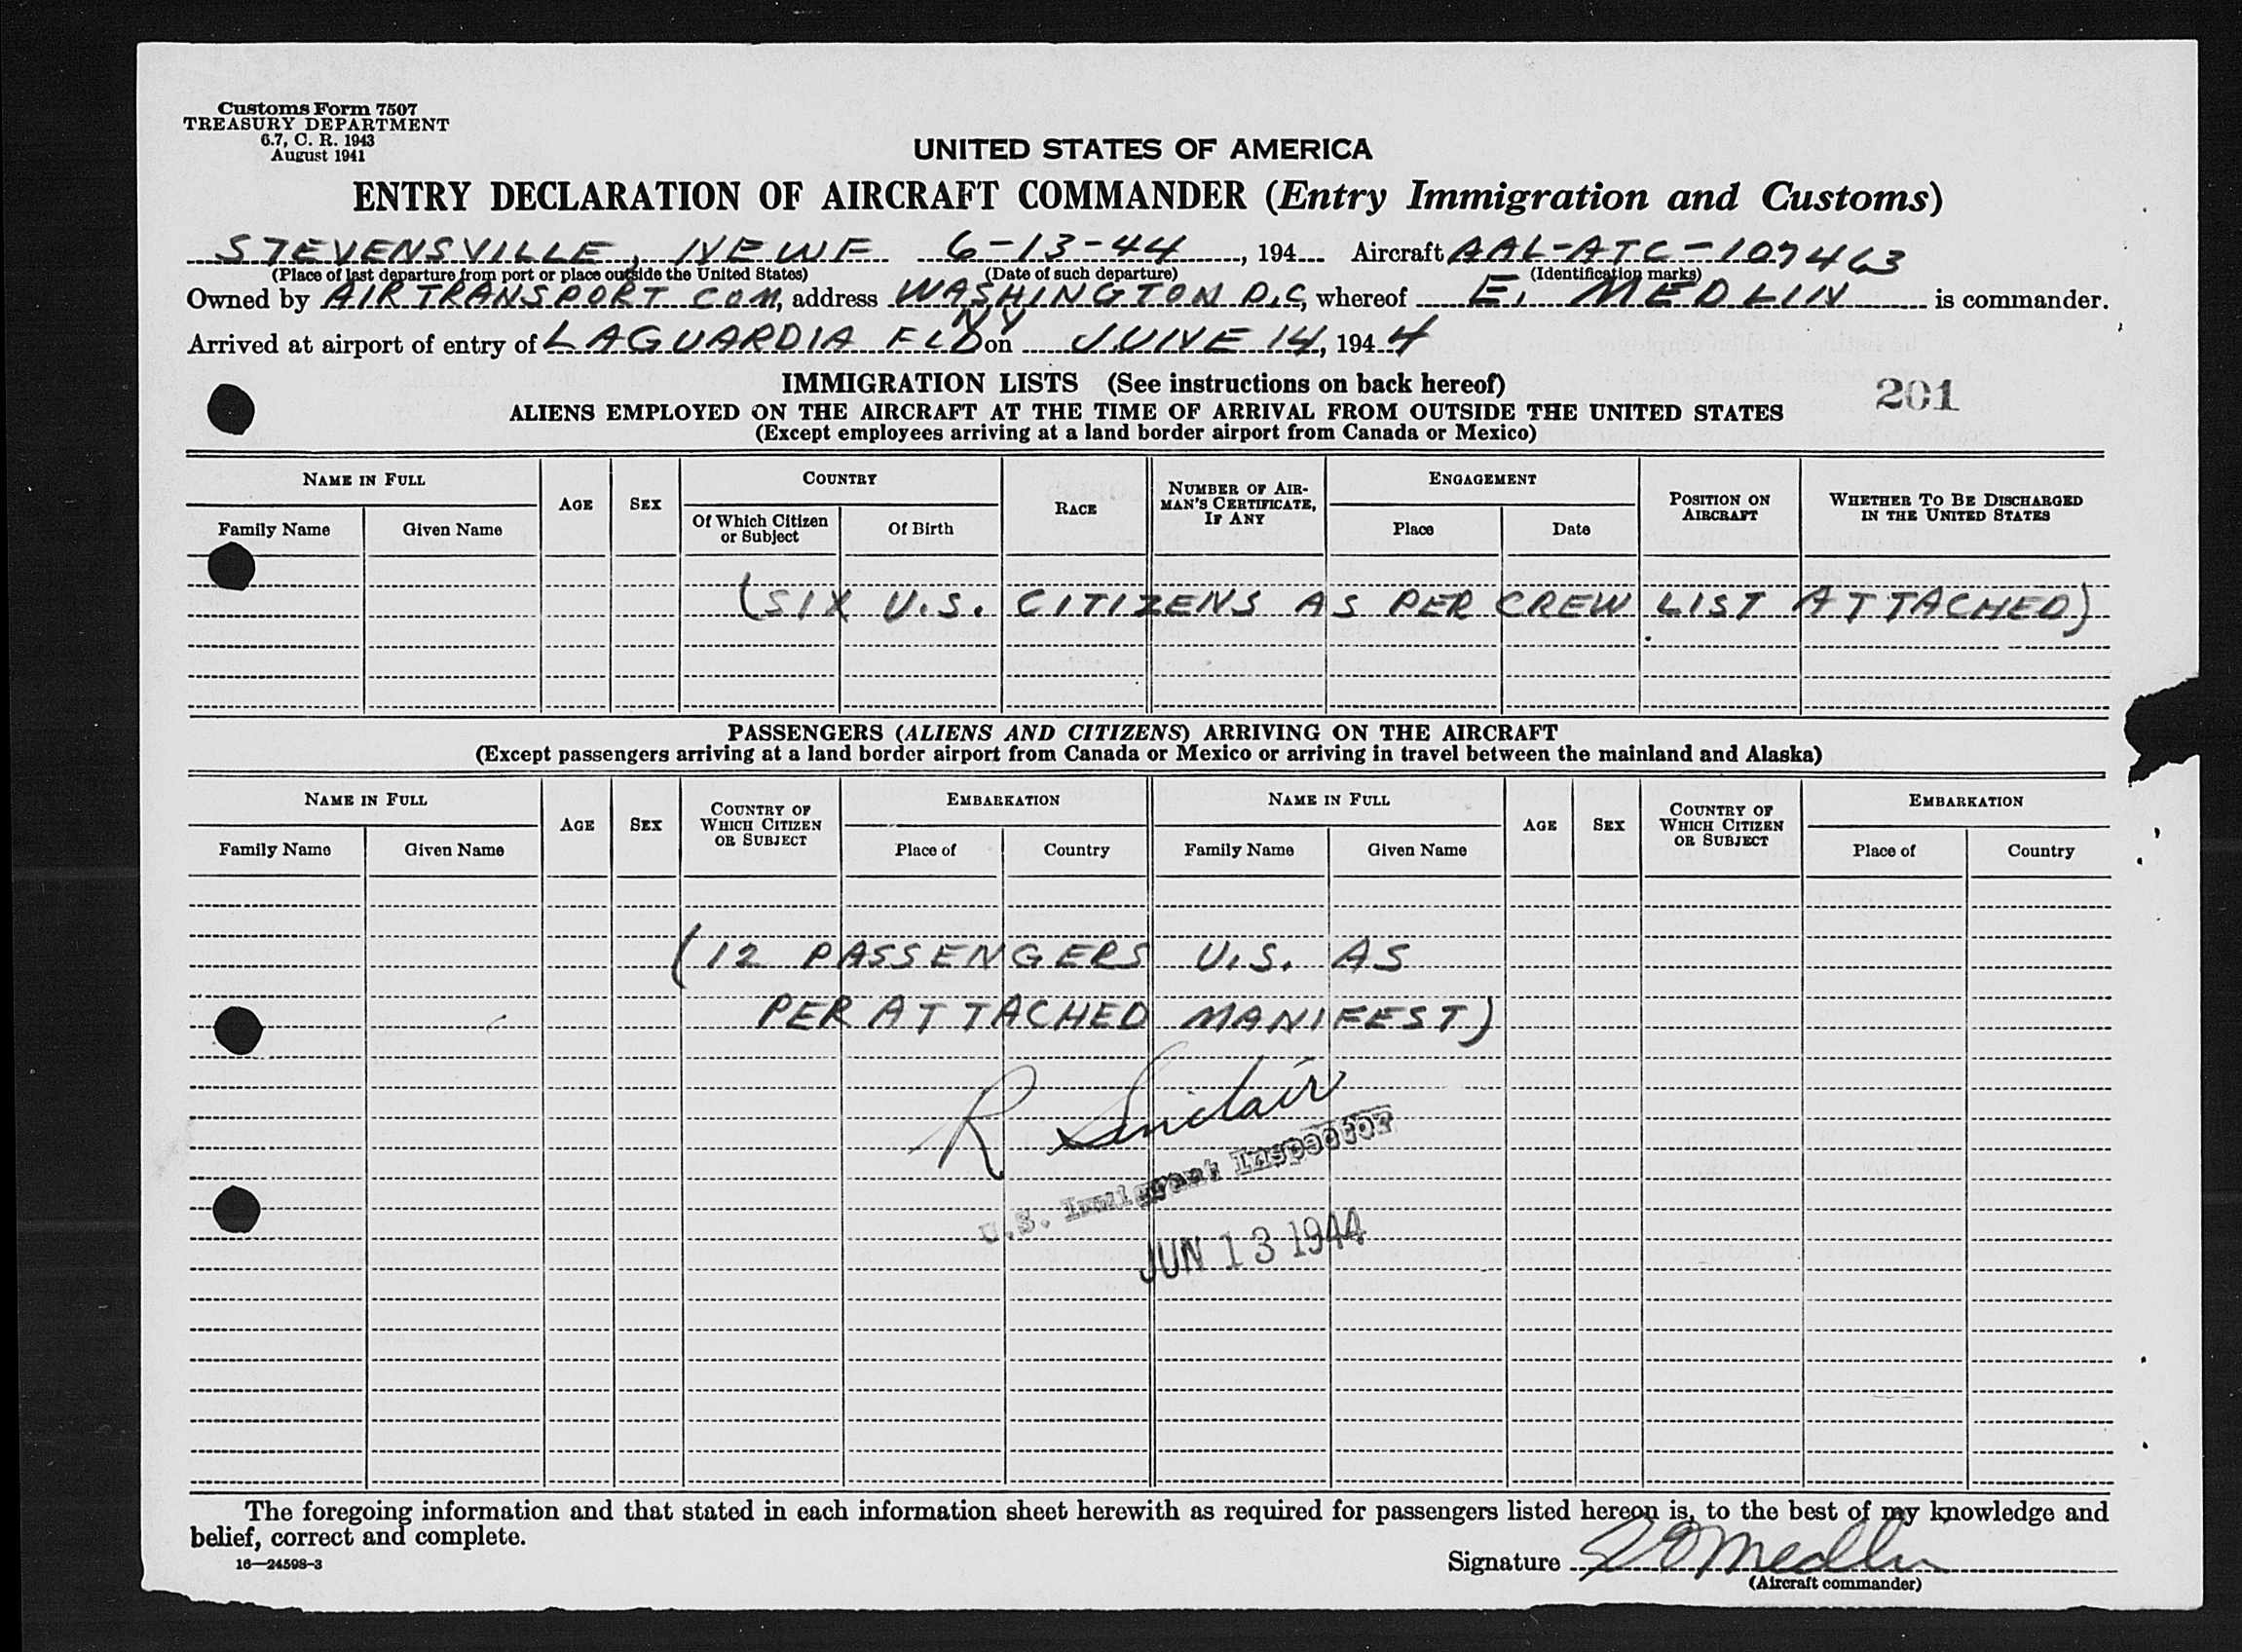 Customs Form 7507
TREASURY DEPARTMENT
6.7, C. R. 1943
August 1941
UNITED STATES OF AMERICA
ENTRY DECLARATION OF AIRCRAFT COMMANDER (Entry Immigration and Customs)
STEVENSVILLE, NEWF 6-13-44, 194 Aircraft AAL-ATC-107463
(Place of last departure from port or place outside the United States) (Date of such departure) (Identification marks)
Owned by AIR TRANSPORT COM, address WASHINGTON D.C, whereof E. MEDLIN is commander.
NY
Arrived at airport of entry of LAGUARDIA FLD on JUNE 14, 1944
IMMIGRATION LISTS (See instructions on back hereof)
201
ALIENS EMPLOYED ON THE AIRCRAFT AT THE TIME OF ARRIVAL FROM OUTSIDE THE UNITED STATES
(Except employees arriving at a land border airport from Canada or Mexico)
NAME IN FULL AGE SEX COUNTRY RACE NUMBER OF AIR-MAN'S CERTIFICATE, IF ANY ENGAGEMENT POSITION ON AIRCRAFT WHETHER TO BE DISCHARGED IN THE UNITED STATES
Family Name Given Name Of Which Citizen or Subject Of Birth Place Date
(SIX U.S. CITIZENS AS PER CREW LIST ATTACHED)
PASSENGERS (ALIENS AND CITIZENS) ARRIVING ON THE AIRCRAFT
(Except passengers arriving at a land border airport from Canada or Mexico or arriving in travel between the mainland and Alaska)
NAME IN FULL AGE SEX COUNTRY OF WHICH CITIZEN OR SUBJECT EMBARKATION NAME IN FULL AGE SEX COUNTRY OF WHICH CITIZEN OR SUBJECT EMBARKATION
Family Name Given Name Place of Country Family Name Given Name Place of Country
(12 PASSENGERS U.S. AS
PER ATTACHED MANIFEST)
R Sinclair
U.S. Immigrant Inspector
JUN 13 1944
The foregoing information and that stated in each information sheet herewith as required for passengers listed hereon is, to the best of my knowledge and
belief, correct and complete.
16—24598-3
Signature Medlin
(Aircraft commander)